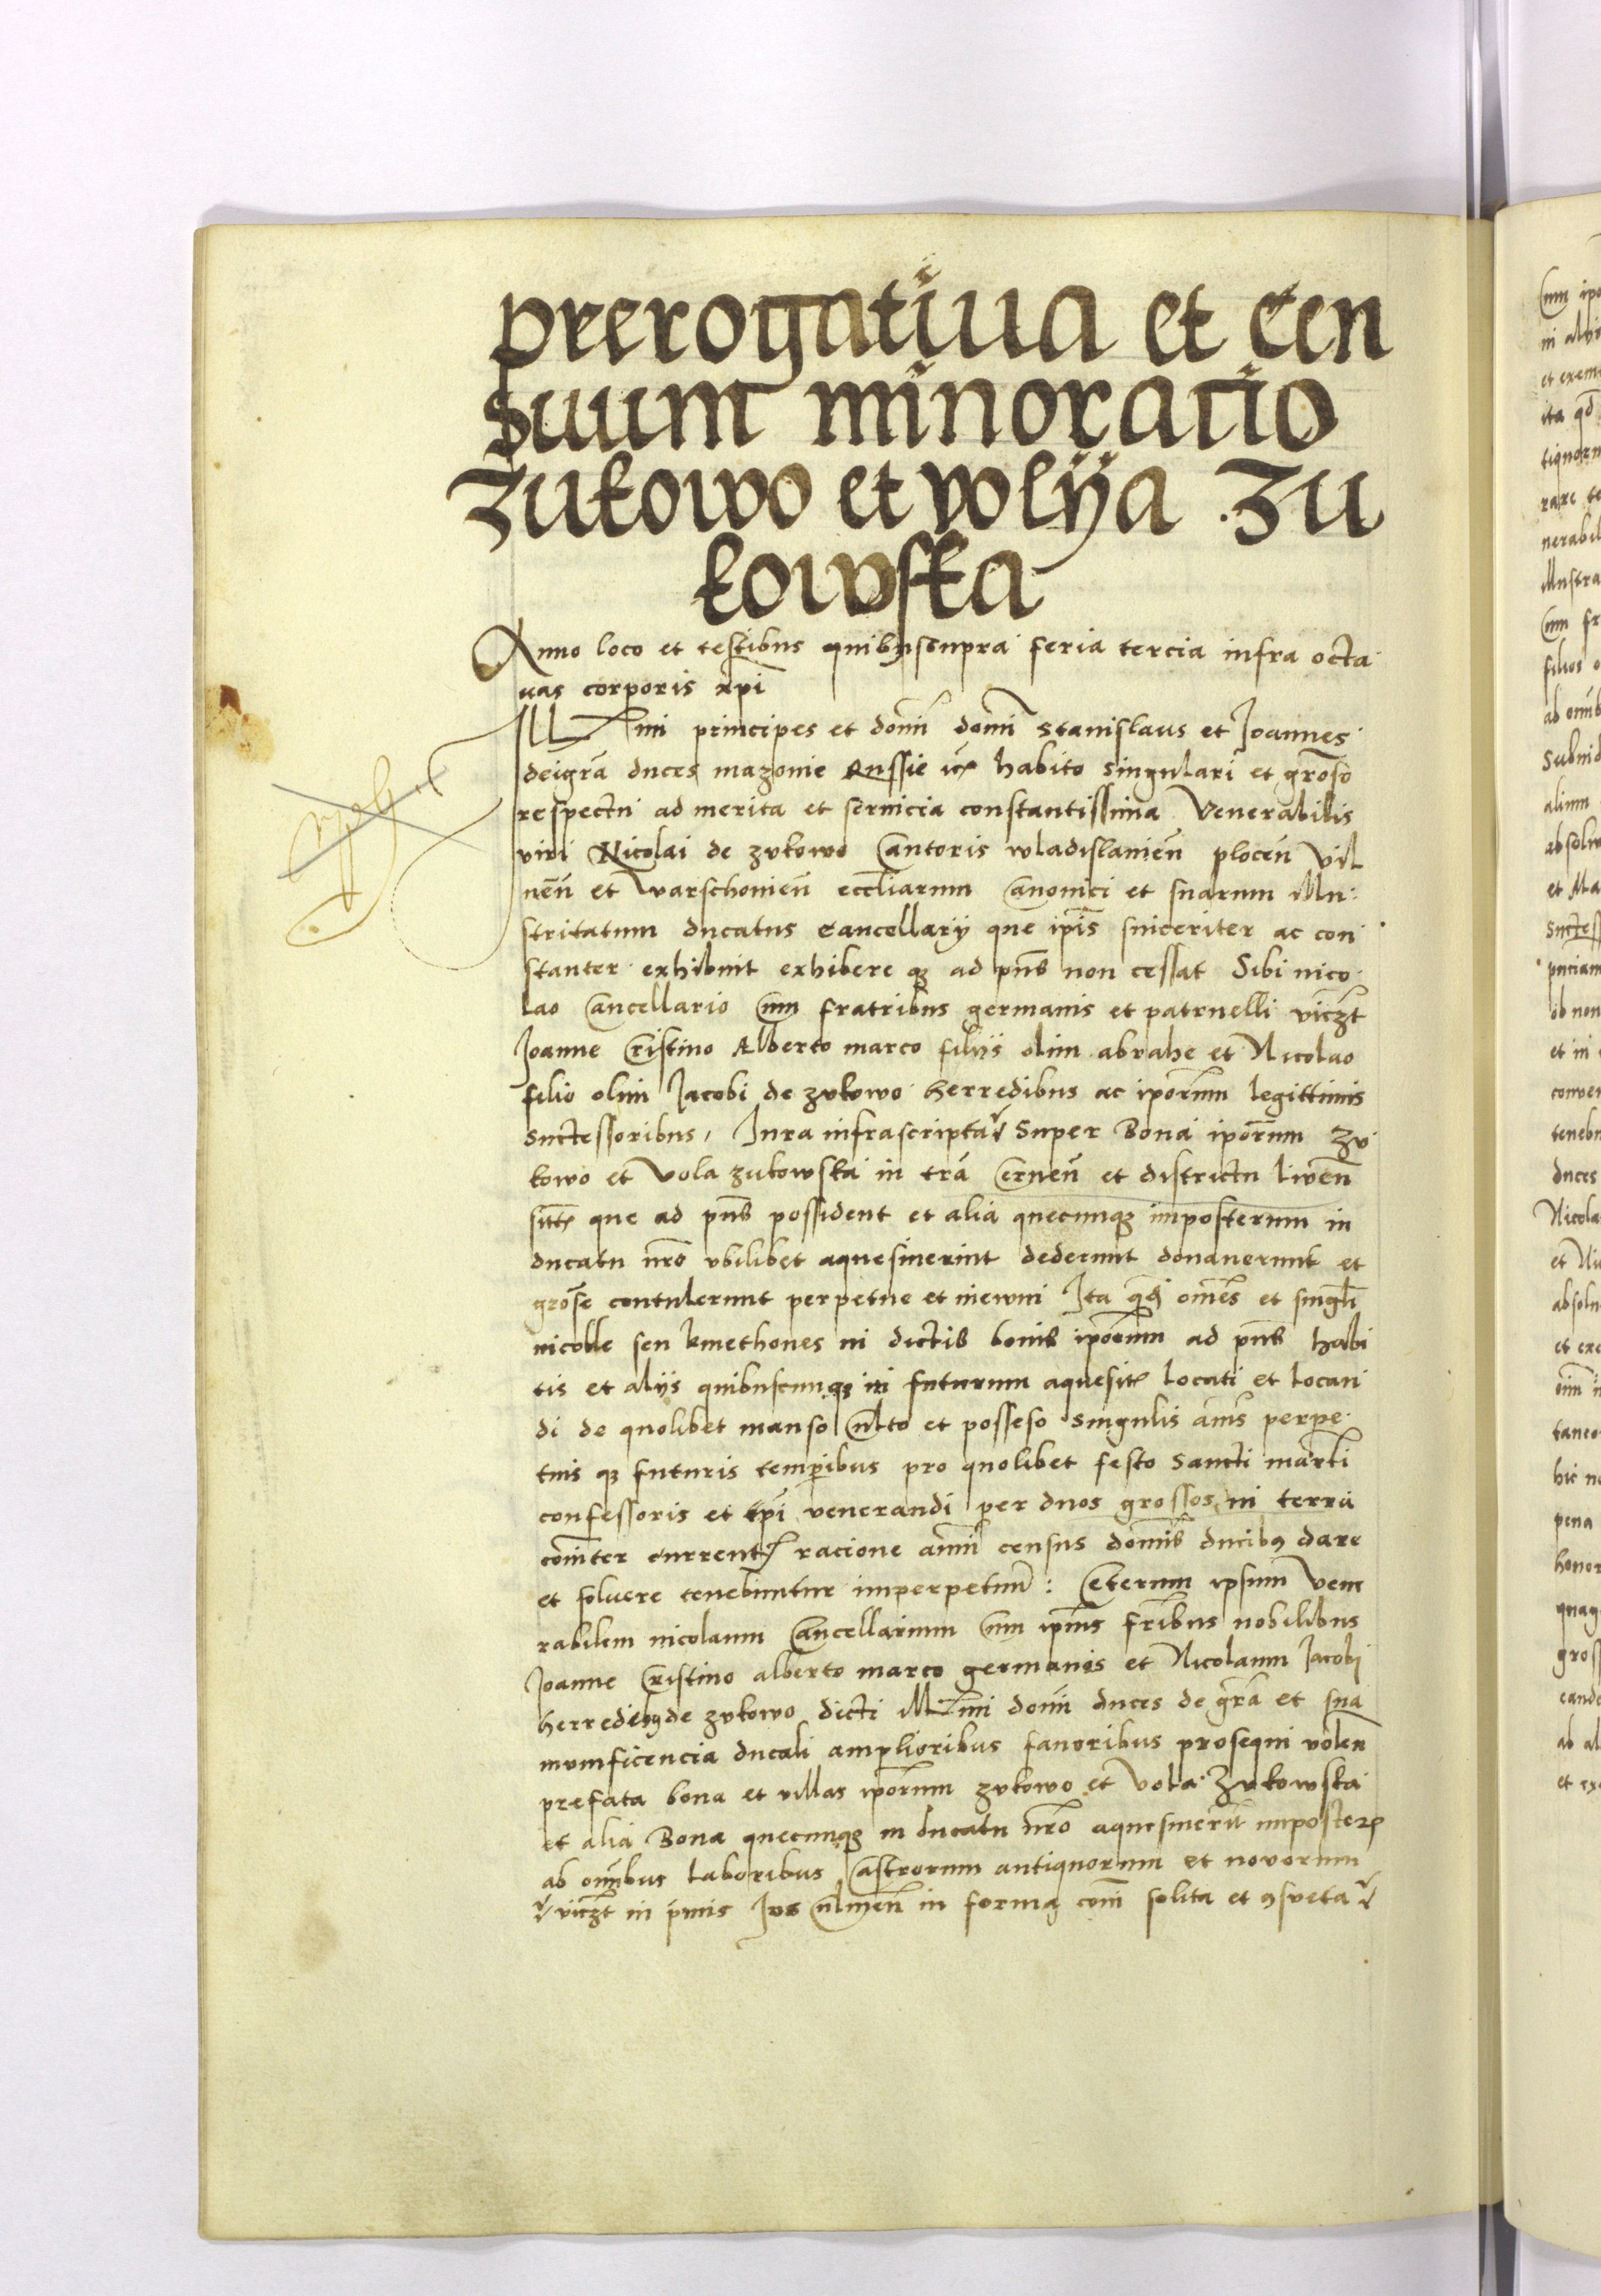 prerogatiua et cen
suum minoratio
zukowo et wolÿa zu
kowska
Anno loco et testibus quibusсupra feria tercia infra octa
uas corporis xpi
Illmi principes et domi domi Stanislaus et Joannes
deigra duces mazouie Russie habito singulari et groso
respectu ad merita et seruicia constantissima Venerabilis
viri Nicolai de zukowo Cantoris wladislauien plocen Vil
nen et warschouien eccliarum Canonici et suarum Illu
stritatum ducatus Cancellarÿ que ipis sinceriter ac con
stanter exhibuit exhibere q3 ad pns non cessat Sibi nico
lao Cancellario Cum fratribus germanis et patruelli viczt
Joanne Cristino Alberto marco filÿs olim abrahe et Nicolao
filio olim Jacobi de zukowo herredibus ac iporum legittimis
Suctessoribus, Jura infrascripta Super Bona iporum zu
kowo et Vola zukowska in tra Cernen et districtu liwen
sitt que ad pns possident et alia quecunq3 imposterum in
ducatu nro vbilibet aquesiuerint dederunt donauerunt et
grose contulerunt perpetue et inewm Ita qd omes et singli
incolle seu kmethones in dictis bonis iporum ad pns habi
tis et alÿs quibuscunq3 in futurum aquesit locati et locan
di de quolibet manso Culto et posseso singulis anis perpe
tuis q3 futuris temporibus pro quolibet festo Sancti martini
confessoris et epi venerandi per duos grossos in terra
comiter current racione anni census domis ducibus dare
et soluere tenebuntur imperpetuum : Ceterum ipsum Vene
rabilem nicolaum Cancellarium Cum ipius fribus nobilibus
Joanne Cristino alberto marco germanis et Nicolaum Jacobi
herredibus de zukowo dicti Illmi domi duces de gra et sua
munificencia ducali amplioribus fauoribus prosequi volen
prefata bona et villas iporum zukowo et Vola zukowska
et alia Bona quecunq3 in ducatu nro aquesiuerit imposter
ab omnibus laboribus Castrorum antiquorum et novorum
viczt in pmis Jus Culmen in forma com solita et 9sveta